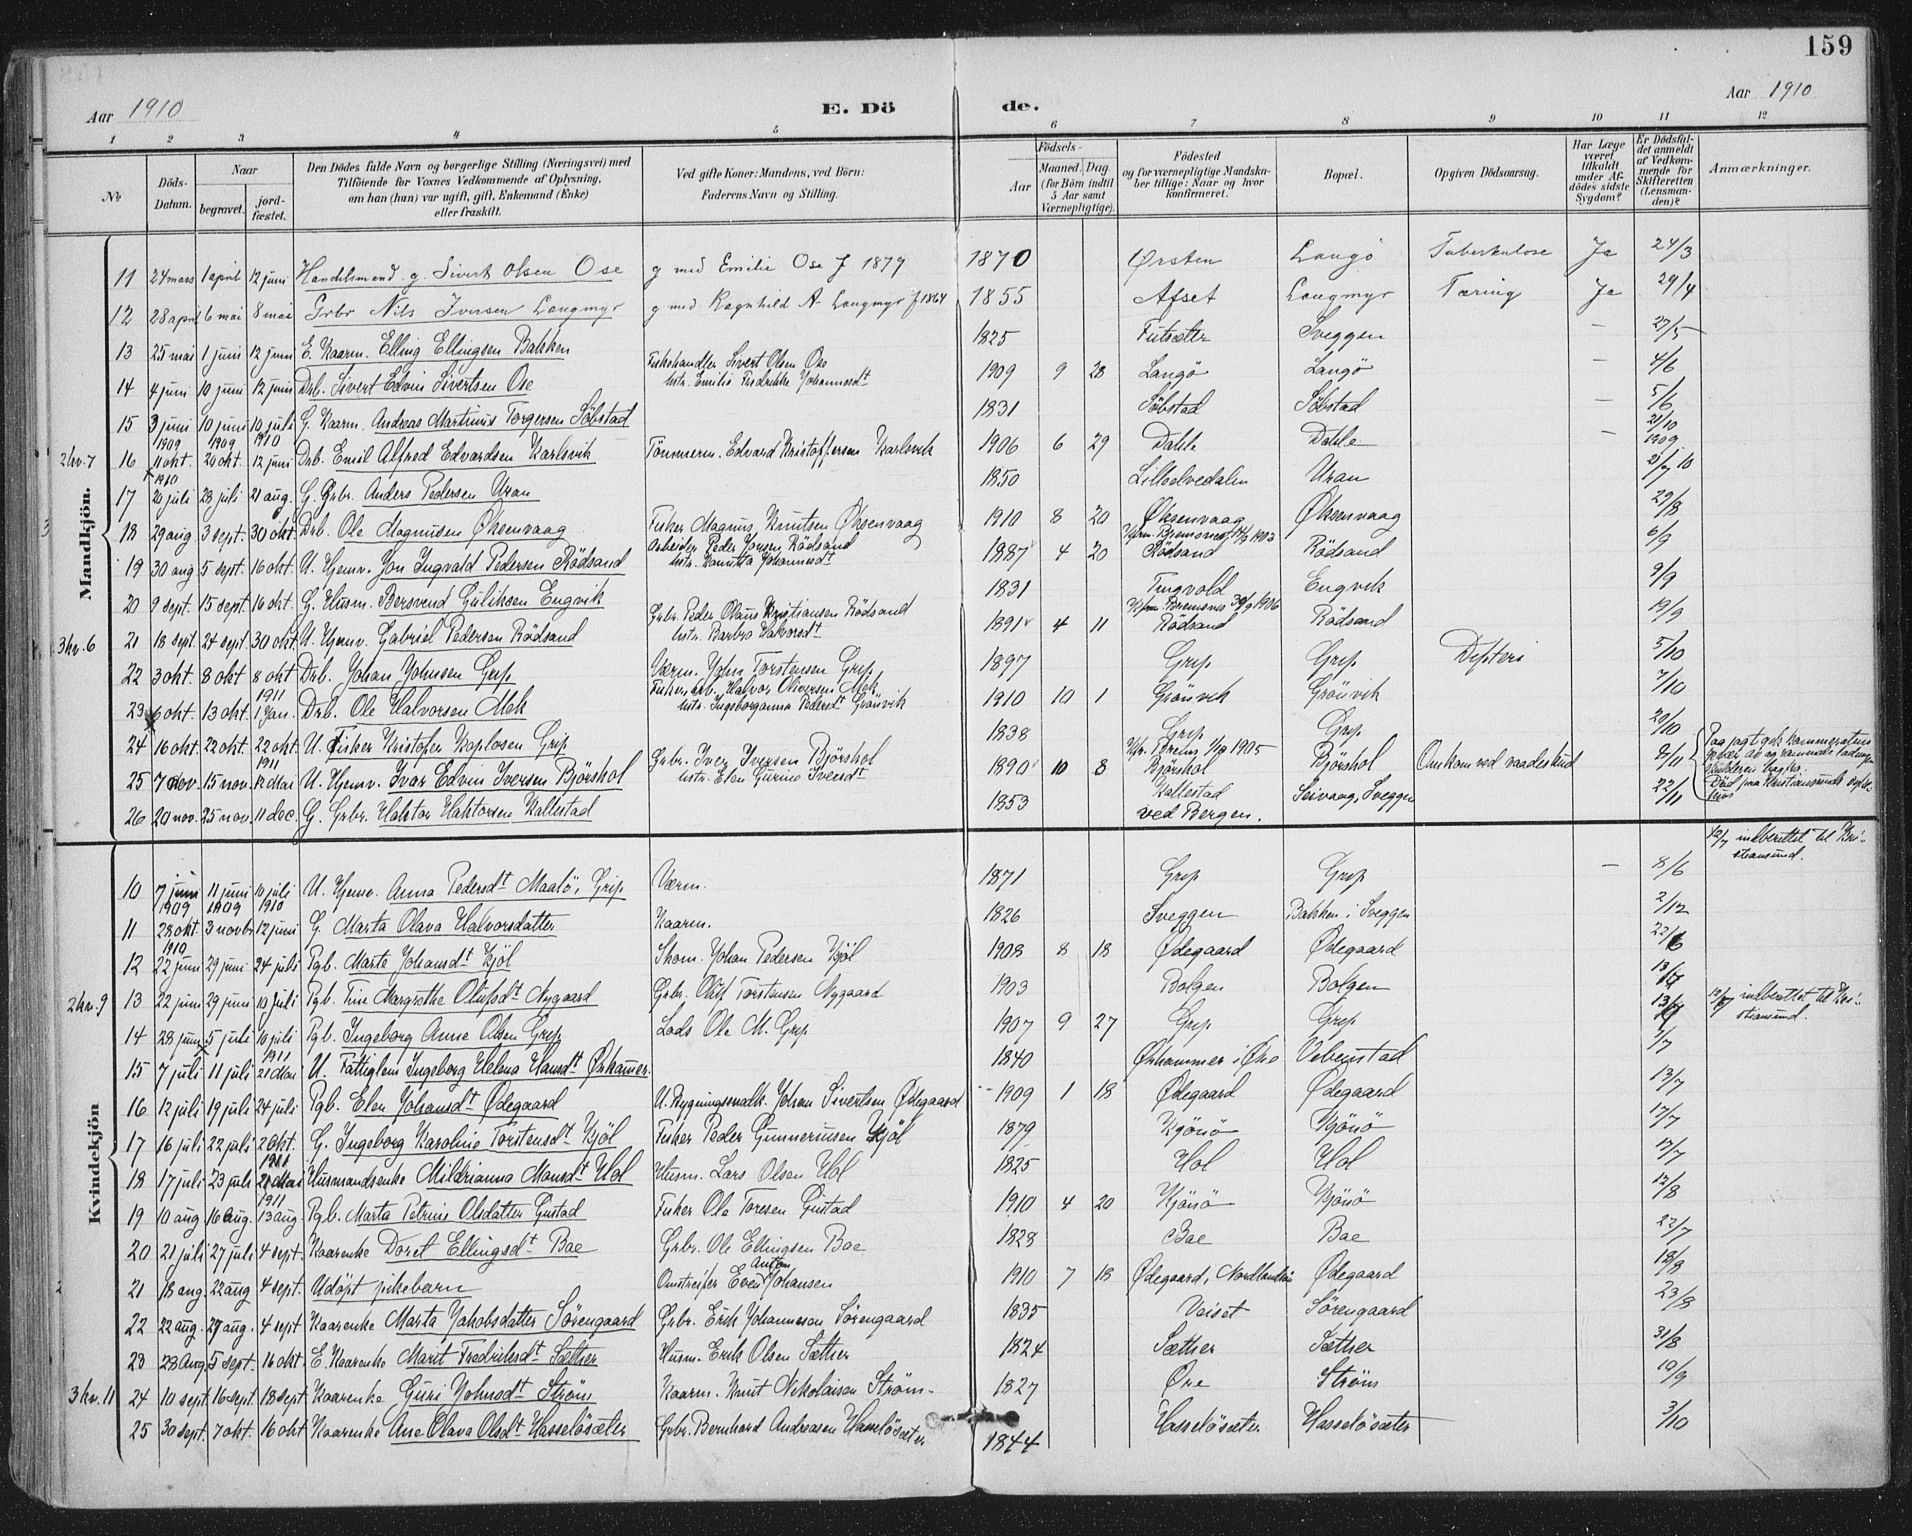 159
Aar 1910
E. Döde.
Aar 1910
1 2 3 4 5 6 7 8 9 10 11 12
No
Döds-Datum.
Naar
begravet.
jordfæstet.
Den Dödes fulde Navn og borgerlige Stilling (Næringsvei) med
Tilföiende for Voxnes Vedkommende af Oplysning,
om han (hun) var ugift, gift, Enkemand (Enke)
eller fraskilt.
Ved gifte Koner: Mandens, ved Börn:
Faderens Navn og Stilling.
Födsels-
Aar
Maaned. Dag.
(for Börn indtil
5 Aar samt
Værnepligtige).
Födested
og for værnepligtige Mandskaber tillige: Naar og hvor
konfirmeret.
Bopæl.
Opgiven Dödsaarsag.
Har Læge
været
tilkaldt
under Afdödes sidste
Sygdom?
Er Dödsfaldet anmeldt
af Vedkommende for
Skifteretten
(Lensmanden)?
Anmærkninger.
Mandkjön.
11 24 mars 1 april 12 juni Handelsmand g. Sivert Olsen Ose g med Emilie Ose f 1879 1870 Ørsten Langö Tuberkulose Ja 24/3
12 28 april 6 mai 8 mai Grbr Nils Iversen Langmyr g med Ragnhild A Langmyr f 1864 1855 Afset Langmyr Tæring Ja 29/4
13 25 mai 1 juni 12 juni E. Kaarm. Elling Ellingsen Bakken 1825 Futsætter Sveggen — 27/5
14 4 juni 10 juni 12 juni Drb. Sivert Edvin Sivertsen Ose Fiskehandler Sivert Olsen Ose
hstr. Emilie Fredrikke Johannesdt 1909 9 28 Langö Langö — 4/6
15 3 juni 10 juni 10 juli G. Kaarm. Andreas Martinus Torgersen Söbstad 1831 Söbstad Söbstad — 5/6
2 kv. 7 16 1909 11 okt. 1909 20 okt. 1910 12 juni Drb. Emil Alfred Edvardsen Karlsvik Tömmerm. Edvard Kristoffersen Karlsvik 1906 6 29 Dahle Dahle — 21/10 1909
17 1910 20 juli 28 juli 21 aug. G. Grbr. Anders Pedersen Uran 1850 Lilleelvedalen Uran 21/7 10
18 29 aug 3 sept. 30 okt. Drb. Ole Magnusen Øksenvaag Fisker Magnus Knutsen Øksenvaag 1910 8 20 Øksenvaag Øksenvaag 29/8
19 30 aug 5 sept. 16 okt. U. Hjemv. Jon Ingvald Pedersen Rödsand Arbeider Peder Jonsen Rödsand
hstr. Johannesdt 1887 4 20 Kfrm. Bremsnes 1902
Rödsand Rödsand 6/9
20 9 sept. 15 sept. 16 okt. G. Husm. Bersvend Guliksen Engvik 1831 Tingvold Engvik 9/9
3 kv. 6 21 18 sept. 24 sept 30 okt. U. Hjemv. Gabriel Pedersen Rödsand Grbr. Peder Olaus Kristiansen Rödsand
hstr. Barbro Halvorsdt 1891 4 11 Kfrm. Bremsnes 30/9 1906
Rödsand Rödsand 19/9
22 3 okt. 8 okt 8 okt Drb. Johan Johnsen Grip Værm. John Torstensen Grip 1897 Grip Grip Difteri 5/10
23 6 okt. 13 okt. 1911 1 jan. Drb. Ole Halvorsen Mek Fisker, arb. Halvor Oliversen Mek
hstr. Ingeborganna Pedersdt Grönvik 1910 10 1 Grönvik Grönvik 7/10
24 16 okt. 22 okt. 22 okt. U. Fisker Kristofer Koplosen Grip 1838 Grip Grip 20/10
25 7 nov. 15 nov. 1911 12 Mai U. Hjemv. Ivar Edvin Iversen Bjørshol Grbr. Iver Iversen Bjørshol
hstr. Elen Gurine Iversdt 1890 10 8 Kfr. Brems 1905
Bjørshol Bjørshol Omkom ved vaadeskud 9/11 Paa jagt gik kammeratens
gevær av og rammede
26 20 nov. 25 nov. 11 dec. G. Grbr. Haktor Haktorsen Kallestad 1853 Kallestad
ved Bergen. Seivaag, Sveggen 22/11
Kvindekjön
10 7 juni 11 juni 10 juli U. Hjemv. Anna Pedersdt Maalö, Grip Værm. 1871 Grip Grip — 8/6 12/7 indberettet til Kristiansund.
11 1909 28 okt. 1909 3 novbr 1910 12 juni G. Marta Olava Halvorsdatter Kaarm. 1826 Sveggen Bakken i Sveggen 2/12
12 1910 22 juni 29 juni 24 juli Pgb. Marta Johansdt Kjöl Skom. Johan Pedersen Kjöl 1908 8 18 Ødegaard Ødegaard 22/6
2 kv. 9 13 22 juni 29 juni 10 juli Pgb. Tine Margrethe Olufsdt Nygaard Grbr. Oluf Torstensen Nygaard 1903 Bolgen Bolgen
14 28 juni 5 juli 10 juli Pgb. Ingeborg Anne Olsen Grip Lods Ole M. Grip 1907 9 27 Grip Grip indberettet til Kristiansund.
15 7 juli 11 juli 1911 21 Mai U. Fattiglem Ingeborg Helena Hansdt Ørhammer. 1840 Ørhammer i Øre Vebenstad
16 12 juli 19 juli 24 juli Pgb. Elen Johansdt Ødegaard U. Bygningssnedk. Johan Sivertsen Ødegaard 1909 1 18 Ødegaard Ødegaard 13/7
17 16 juli 22 juli 2 okt. G. Ingeborg Karoline Torstensdt Kjöl Fisker Peder Gunneriusen Kjöl 1879 Kjönö Kjönö 17/7
18 17 juli 23 juli 1911 21 Mai Husmandsenke Mildrianna Monsdt Hol Husm. Lars Olsen Hol 1825 Hol Hol 17/7
19 10 aug 16 aug. 1911 13 aug. Pgb. Marta Petrine Olsdatter Gustad Fisker Ole Toresen Gustad 1910 4 20 Kjönö Kjönö 12/8
20 21 juli 27 juli 4 sept. Kaarenke Doret Ellingsdt Bae Grbr. Ole Ellingsen Bae 1828 Bae Bae 22/7
21 18 aug. 22 aug 4 sept. Udöpt pikebarn Omstreifer Even Anton Johansen 1910 7 18 Ødegaard, Nordlandöen Ødegaard 18/8
22 22 aug. 27 aug. 4 sept Kaarenke Marta Jakobsdatter Sörengaard Grbr. Erik Johannesen Sörengaard 1835 Veiset Sörengaard 23/8
23 28 Aug 5 sept. 16 okt. E. Kaarenke Marit Fredriksdt Sæther Husm. Erik Olsen Sæther 1824 Sæther Sæther 31/8
3 kv. 11 24 10 sept. 16 sept. 18 sept Kaarenke Guri Johnsdt Ström Kaarm. Knut Nikolaisen Ström 1827 Øre Ström 19/9
25 30 sept. 7 okt. 16 okt Kaarenke Ane Olava Olsdt Hasselösæter Grbr. Bernhard Andreasen Hasselösæter 1844 Hasselösæter Hasselösæter 3/10